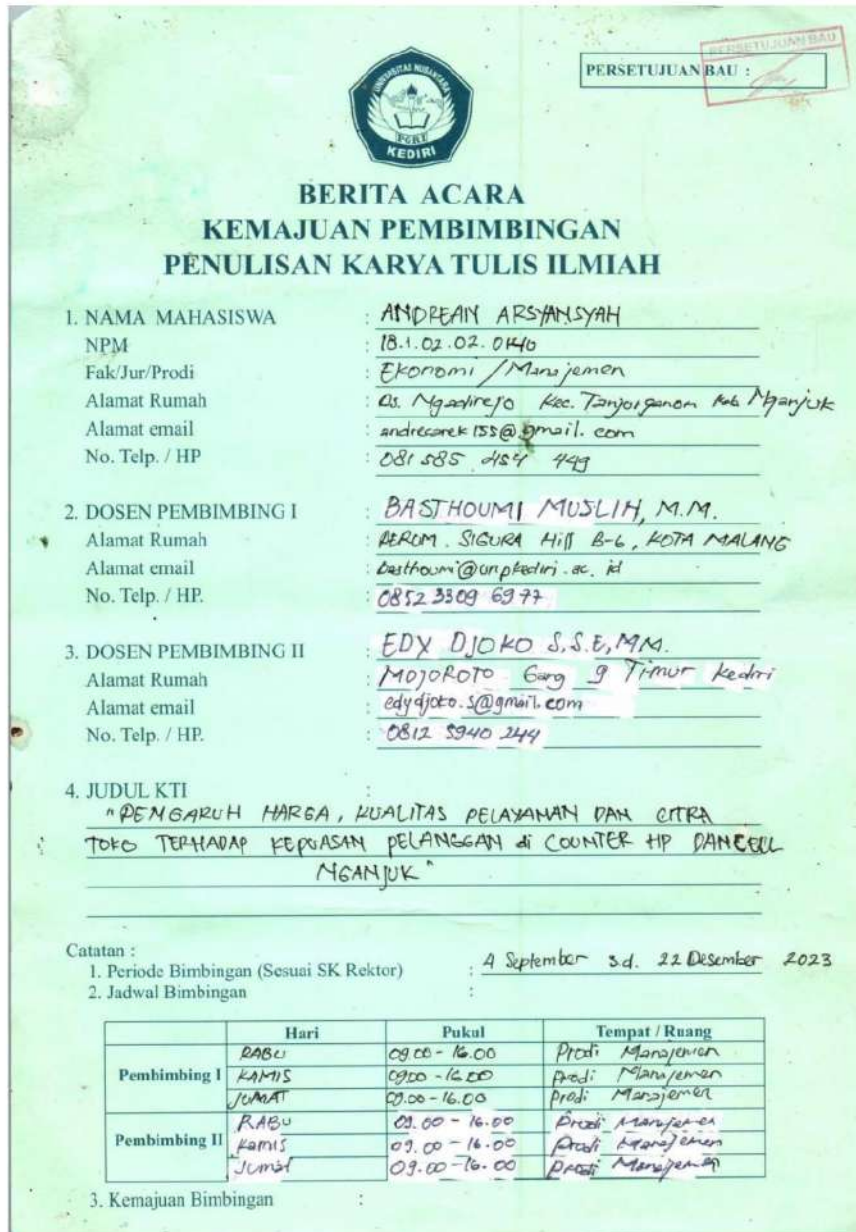 PERSETUJUAN BAU :
PERSETUJUAN BAU
UNIVERSITAS NUSANTARA
PGRI
KEDIRI
BERITA ACARA
KEMAJUAN PEMBIMBINGAN
PENULISAN KARYA TULIS ILMIAH
1. NAMA MAHASISWA : ANDREAN ARSYANSYAH
NPM : 18.1.02.02.0140
Fak/Jur/Prodi : Ekonomi / Manajemen
Alamat Rumah : Ds. Ngadirejo Kec. Tanjunganom Kab Nganjuk
Alamat email : andrecarek155@gmail.com
No. Telp. / HP : 081 585 454 449
2. DOSEN PEMBIMBING I : BASTHOUMI MUSLIH, M.M.
Alamat Rumah : PERUM. SIGURA Hill B-6, KOTA MALANG
Alamat email : basthoumi@unpkediri.ac.id
No. Telp. / HP. : 0852 3309 6977
3. DOSEN PEMBIMBING II : EDY DJOKO S, S.E, MM.
Alamat Rumah : MOJOROTO Gang 9 Timur Kediri
Alamat email : edydjoko.s@gmail.com
No. Telp. / HP. : 0812 5940 244
4. JUDUL KTI :
"PENGARUH HARGA, KUALITAS PELAYANAN DAN CITRA
TOKO TERHADAP KEPUASAN PELANGGAN di COUNTER HP DANCELL
NGANJUK"
Catatan :
1. Periode Bimbingan (Sesuai SK Rektor) : 4 September s.d. 22 Desember 2023
2. Jadwal Bimbingan :
Hari Pukul Tempat / Ruang
Pembimbing I RABU 09.00 - 16.00 Prodi Manajemen
KAMIS 09.00 - 16.00 prodi Manajemen
JUMAT 09.00 - 16.00 prodi Manajemen
Pembimbing II RABU 09.00 - 16.00 Prodi Manajemen
Kamis 09.00 - 16.00 prodi Manajemen
Jumat 09.00 - 16.00 prodi Manajemen
3. Kemajuan Bimbingan :